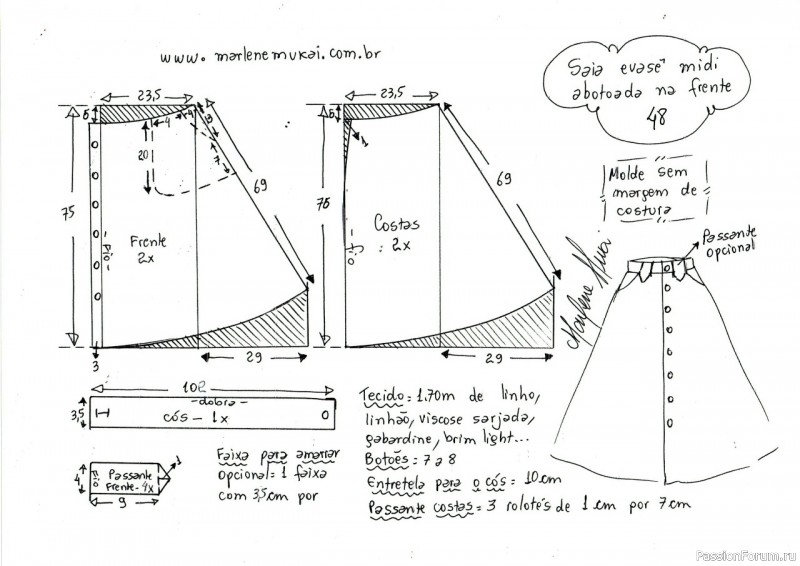 www.marlenemukai.com.br
Saia evasê midi
abotoada na frente
48
23,5
6
4
4
3
20
7
75
69
Frente
2x
- Fio -
3
29
23,5
6
1
76
69
Costas
: 2x
Fio
29
Molde sem
margem de
costura
Marlene Mukai
Passante
opcional
102
3,5
-dobra-
cós - 1x
4
Fio
Passante
Frente - 4x
1
9
Faixa para amarrar
opcional = 1 faixa
com 3,5cm por
Tecido = 1.70m de linho,
linhão, viscose sarjada,
gabardine, brim light...
Botões = 7 a 8
Entretela para o cós = 10cm
Passante costas = 3 rolotês de 1cm por 7cm
PassionForum.ru